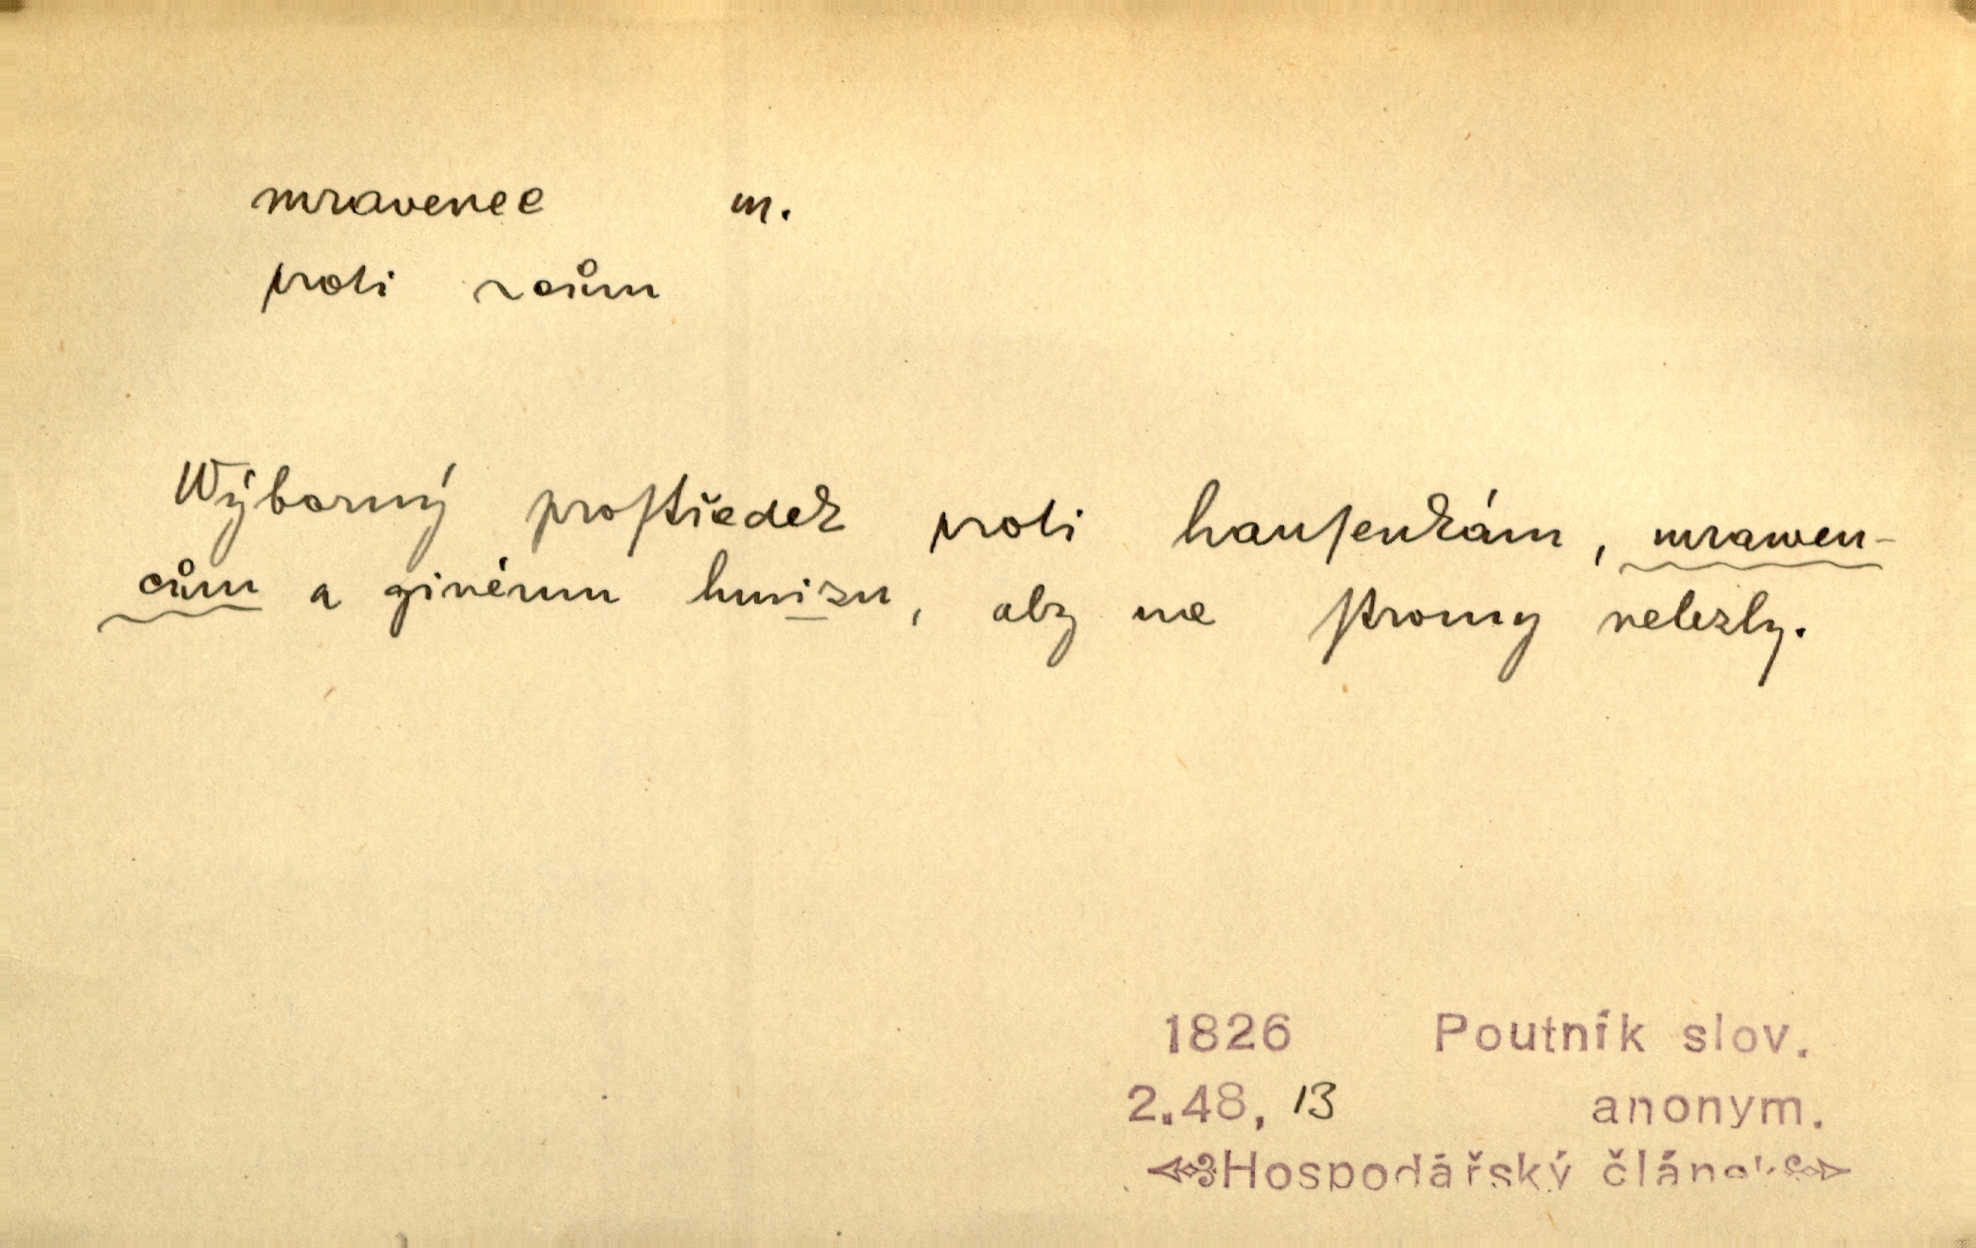 mravenec m.
proti ~cům
Wýborný proſtředek proti hauſenkám, mrawen-
cům a ginému hmizu, aby na ſtromy nelezly.
1826 Poutník slov.
2.48, 13 anonym.
Hospodářský článek